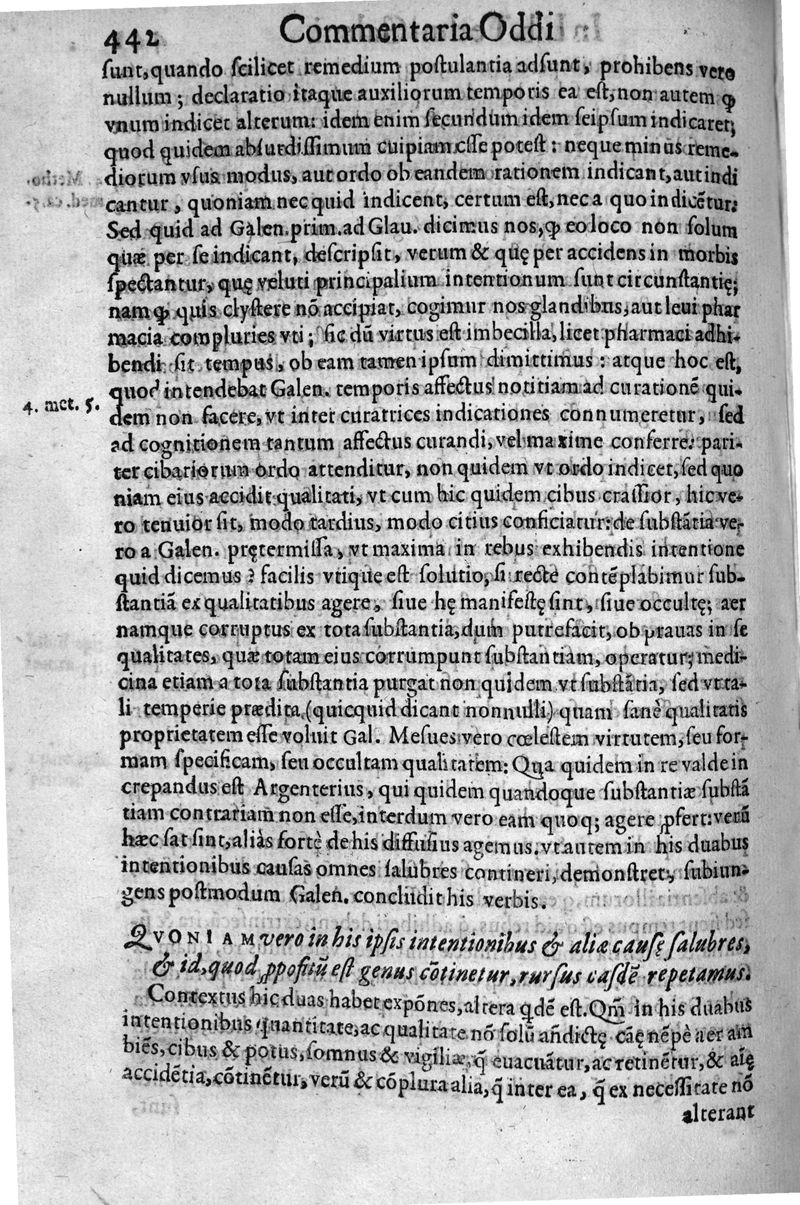 442 Commentaria Oddi
sunt, quando scilicet remedium postulantia adsunt, prohibens vero
nullum; declaratio itaque auxiliorum temporis ea est, non autem ꝙ
vnum indicet alterum: idem enim secundum idem seipsum indicaret;
quod quidem absurdissimum cuipiam esse potest: neque minus reme-
diorum vsus modus, aut ordo ob eandem rationem indicant, aut indi
cantur, quoniam nec quid indicent, certum est, nec a quo indicētur:
Sed quid ad Galen. prim. ad Glau. dicimus nos, ꝙ eo loco non solum
quæ per se indicant, descripsit, verum & quę per accidens in morbis
spectantur, quę veluti principalium intentionum sunt circunstantię;
nam ꝙ quis clystere nō accipiat, cogimur nos glandibus, aut leui phar
macia compluries vti; sic dū virtus est imbecilla, licet pharmaci adhi-
bendi sit tempus, ob eam tamen ipsum dimittimus: atque hoc est,
quod intendebat Galen. temporis affectus notitiam ad curationē qui-
4. met. 5.
dem non facere, vt inter curatrices indicationes connumeretur, sed
ad cognitionem tantum affectus curandi, vel maxime conferre: pari-
ter cibariorum ordo attenditur, non quidem vt ordo indicet, sed quo
niam eius accidit qualitati, vt cum hic quidem cibus crassior, hic ve-
ro tenuior sit, modo tardius, modo citius conficiatur: de substātia ve-
ro a Galen. prętermissa, vt maxima in rebus exhibendis intentione
quid dicemus? facilis vtique est solutio, si recte contēplabimur sub-
stantiā ex qualitatibus agere, siue hę manifestę sint, siue occultę; aer
namque corruptus ex tota substantia, dum putrefacit, ob prauas in se
qualitates, quæ totam eius corrumpunt substantiam, operatur; medi-
cina etiam a tota substantia purgat non quidem vt substātia, sed vt ta-
li temperie prædita, (quicquid dicant nonnulli) quam sanè qualitatis
proprietatem esse voluit Gal. Mesues vero cœlestem virtutem, seu for-
mam specificam, seu occultam qualitatem: Qua quidem in re valde in
crepandus est Argenterius, qui quidem quandoque substantiæ substā
tiam contrariam non esse, interdum vero eam quoq; agere ꝓfert: verū
hæc sat sint, aliàs fortè de his diffusius agemus. vt autem in his duabus
intentionibus causas omnes salubres contineri, demonstret, subiun-
gens postmodum Galen. concludit his verbis.
QVONIAM vero in his ipsis intentionibus & aliæ causę salubres,
& id, quod ꝓpositū est genus cōtinetur, rursus easdē repetamus.
Contextus hic duas habet expōnes, altera qdē est. Qm̄ in his duabus
intentionibus quantitate, ac qualitate nō solū an̄dictę cāę nēpè aer am
biēs, cibus & potus, somnus & vigiliæ, q̄ euacuātur, ac retinētur, & aīę
accidētia, cōtinētur, verū & cōplura alia, q̄ inter ea, q̄ ex necessitate nō
alterant